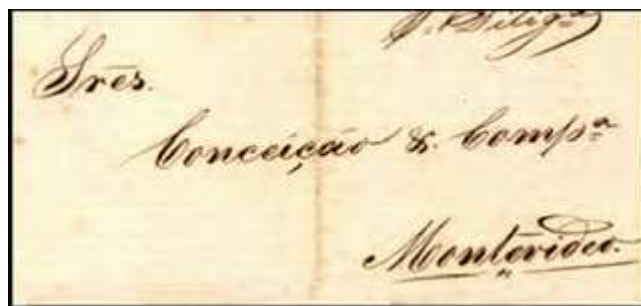 P. Dilig.ª
Sres.
Conceição & Comp.ª
Montevideo.